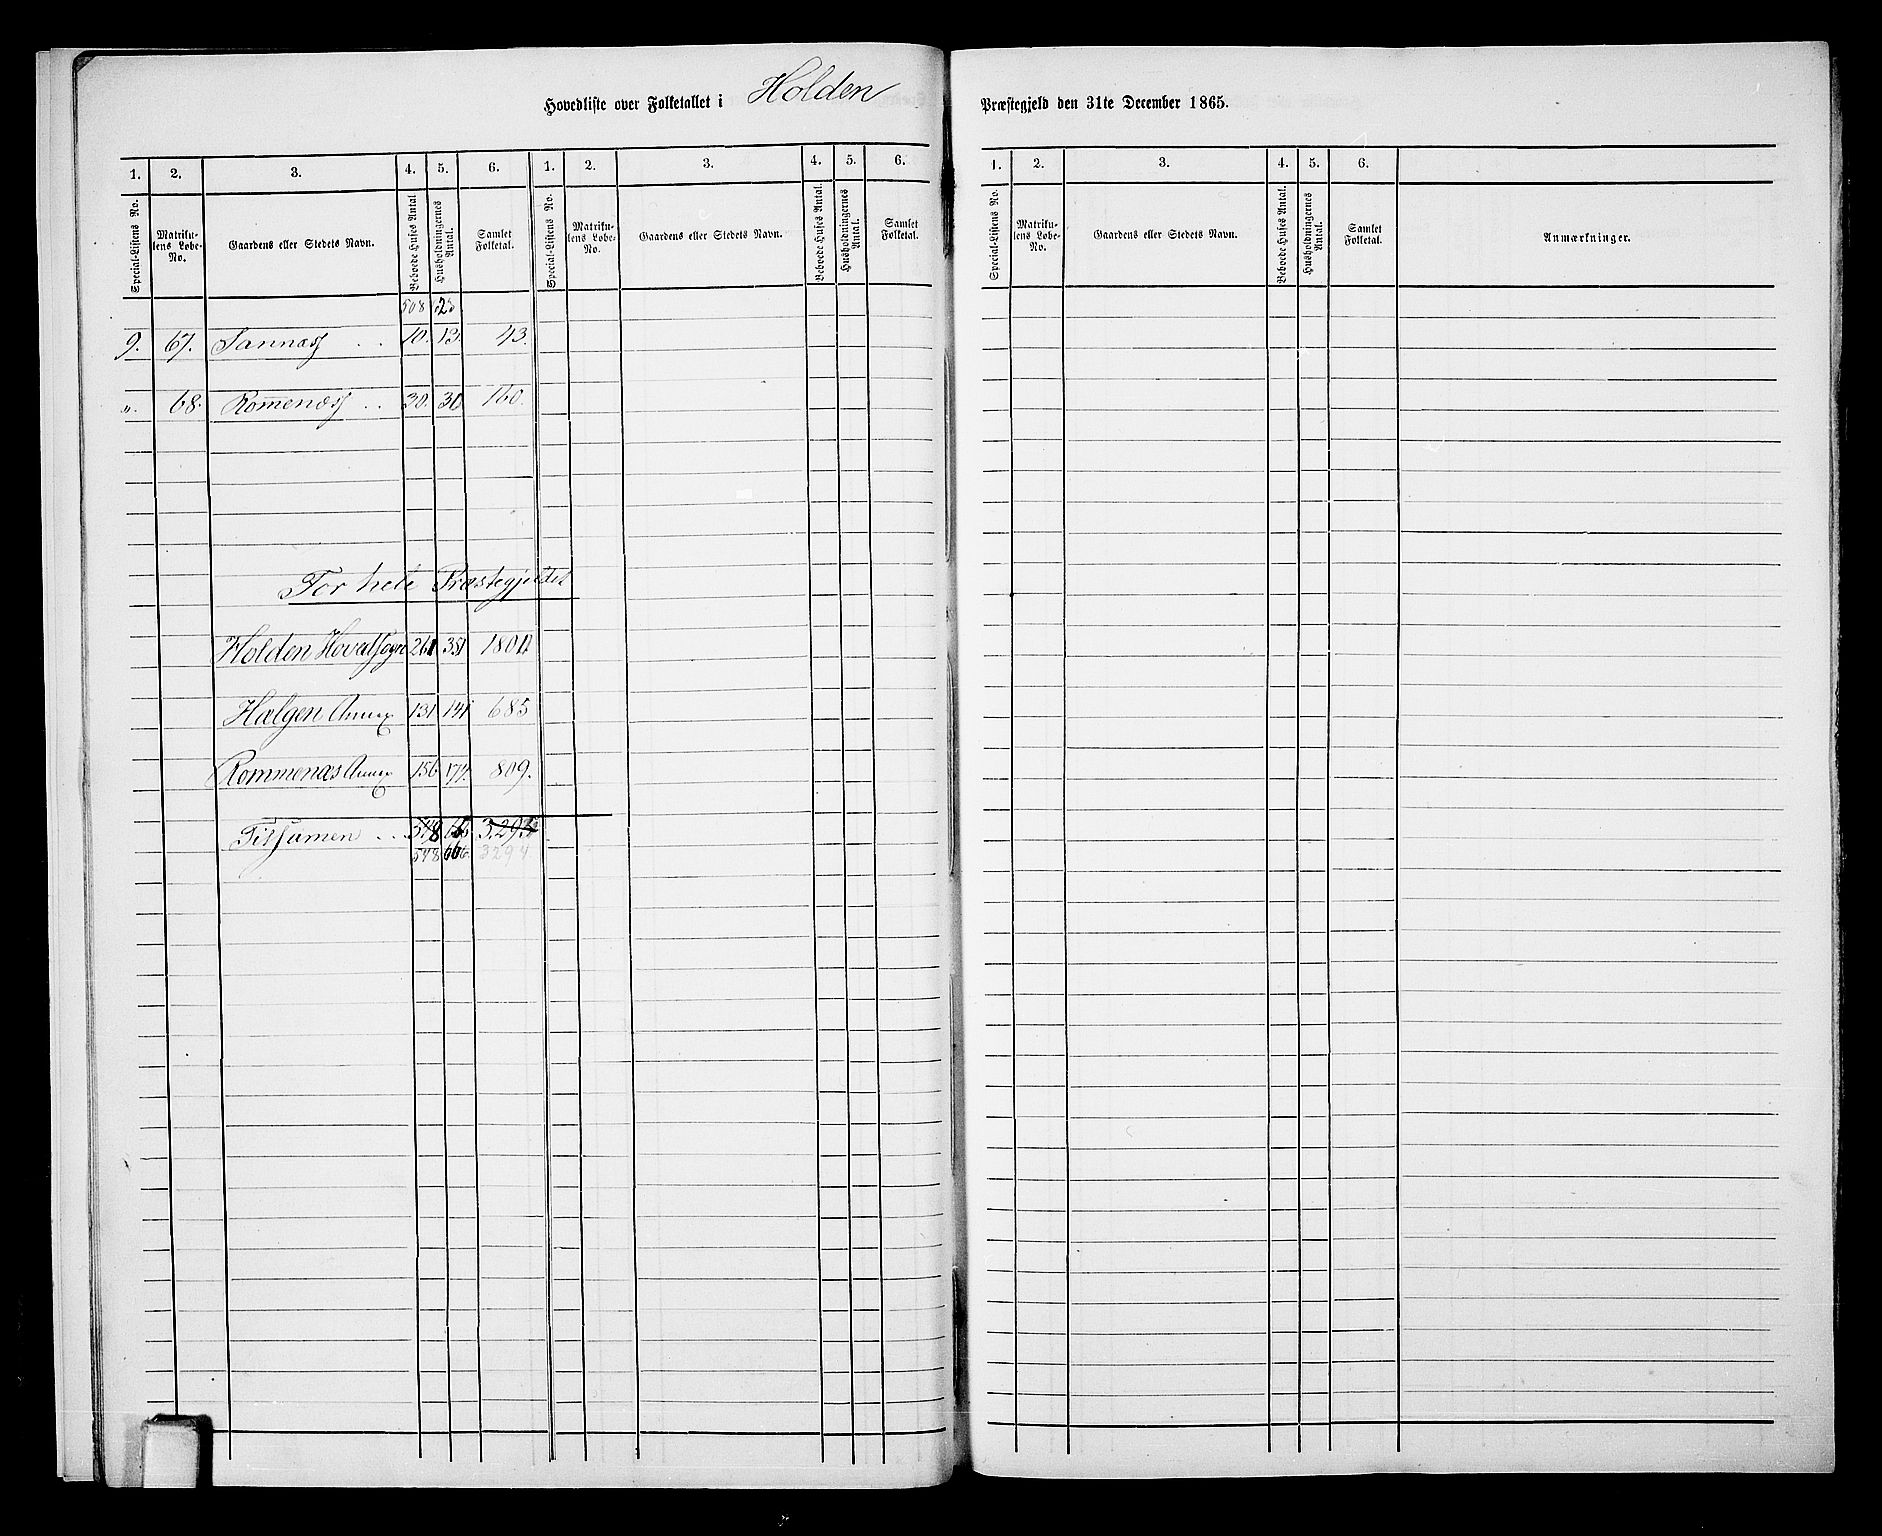 Hovedliste over Folketallet i Holden Præstegjeld den 31te December 1865.
1. 2. 3. 4. 5. 6. 1. 2. 3. 4. 5. 6.
Special-Listens No. Matrikulens Løbe-No. Gaardens eller Stedets Navn. Beboede Huses Antal. Husholdningernes Antal. Samlet Folketal. Special-Listens No. Matrikulens Løbe-No. Gaardens eller Stedets Navn. Beboede Huses Antal. Husholdningernes Antal. Samlet Folketal.
508
9. 67. Sannæs . . 10. 13. 43.
„. 68. Romenæs . . 30. 30 160.
For hele Præstegjeldet
Holden Hovedsogn 261 351
Hælgen Annex 131 141 685
Rommenæs Annex 156 177. 809.
Tilsamen . . 548
548 3294
1. 2. 3. 4. 5. 6.
Special-Listens No. Matrikulens Løbe-No. Gaardens eller Stedets Navn. Beboede Huses Antal. Husholdningernes Antal. Samlet Folketal. Anmærkninger.